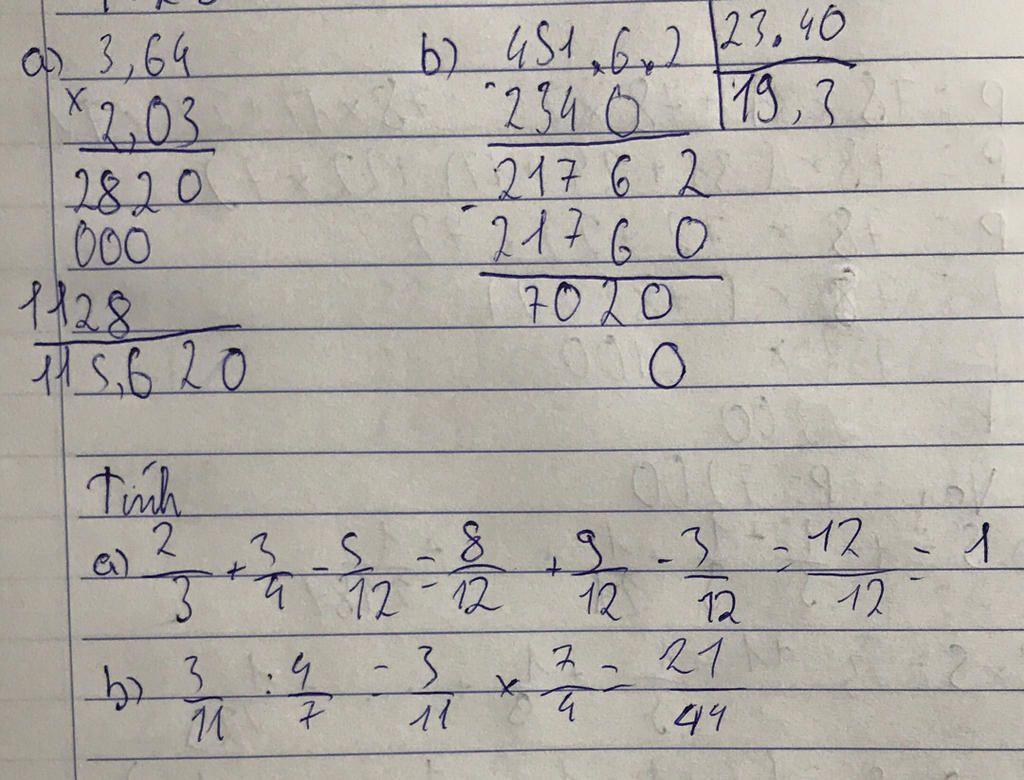 a) 3,64
x 2,03
2820
000
1128
115,620
b) 451.6.2 | 23.40
- 2340 | 19,3
21762
- 21760
7020
0
Tính
a) 2/3 + 3/4 - 5/12 = 8/12 + 9/12 - 3/12 = 12/12 = 1
b) 3/11 : 4/7 = 3/11 x 7/4 = 21/44